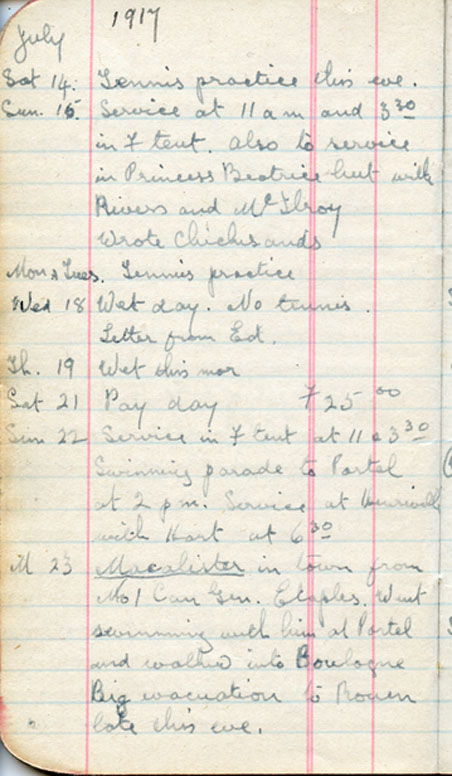 1917
July
Sat 14. Tennis practice this eve.
Sun. 15. Service at 11 a m and 3 30
in F tent. also to service
in Princess Beatrice hut with
Rivers and McIlroy
Wrote Chick &
Mon & Tues. Tennis practice
Wed 18 Wet day. No tennis.
Letter from Ed.
Th. 19 Wet this mor
Sat 21 Pay day 25 00
Sun 22 Service in F tent at 11 & 3 30
Swimming parade to Portel
at 2 p m. Service at
with Hart at 6 30
M 23 Macalister in town from
No 1 Can Gen. Etaples. Went
swimming with him at Portel
and walked into Boulogne
Big evacuation to Rouen
late this eve.